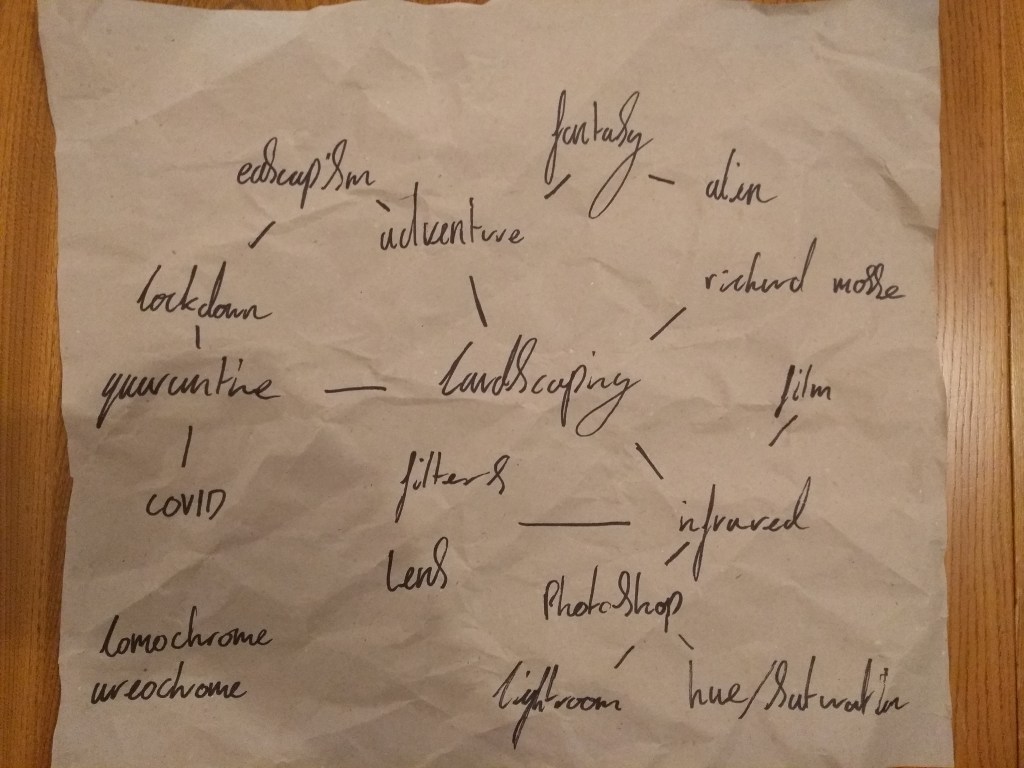 fantasy
edscapism
alien
adventure
richard mosse
lockdown
landscaping
quarantine
film
filters
COVID
infrared
Lens
Photoshop
lomochrome
ureochrome
lightroom
hue/saturation